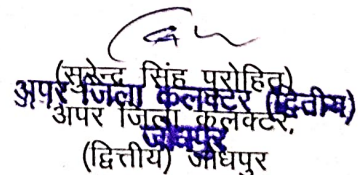 (सुरेन्द्र सिंह पुरोहित)
अपर जिला कलक्टर (द्वितीय)
अपर जिला कलक्टर,
जोधपुर
(द्वित्तीय) जोधपुर